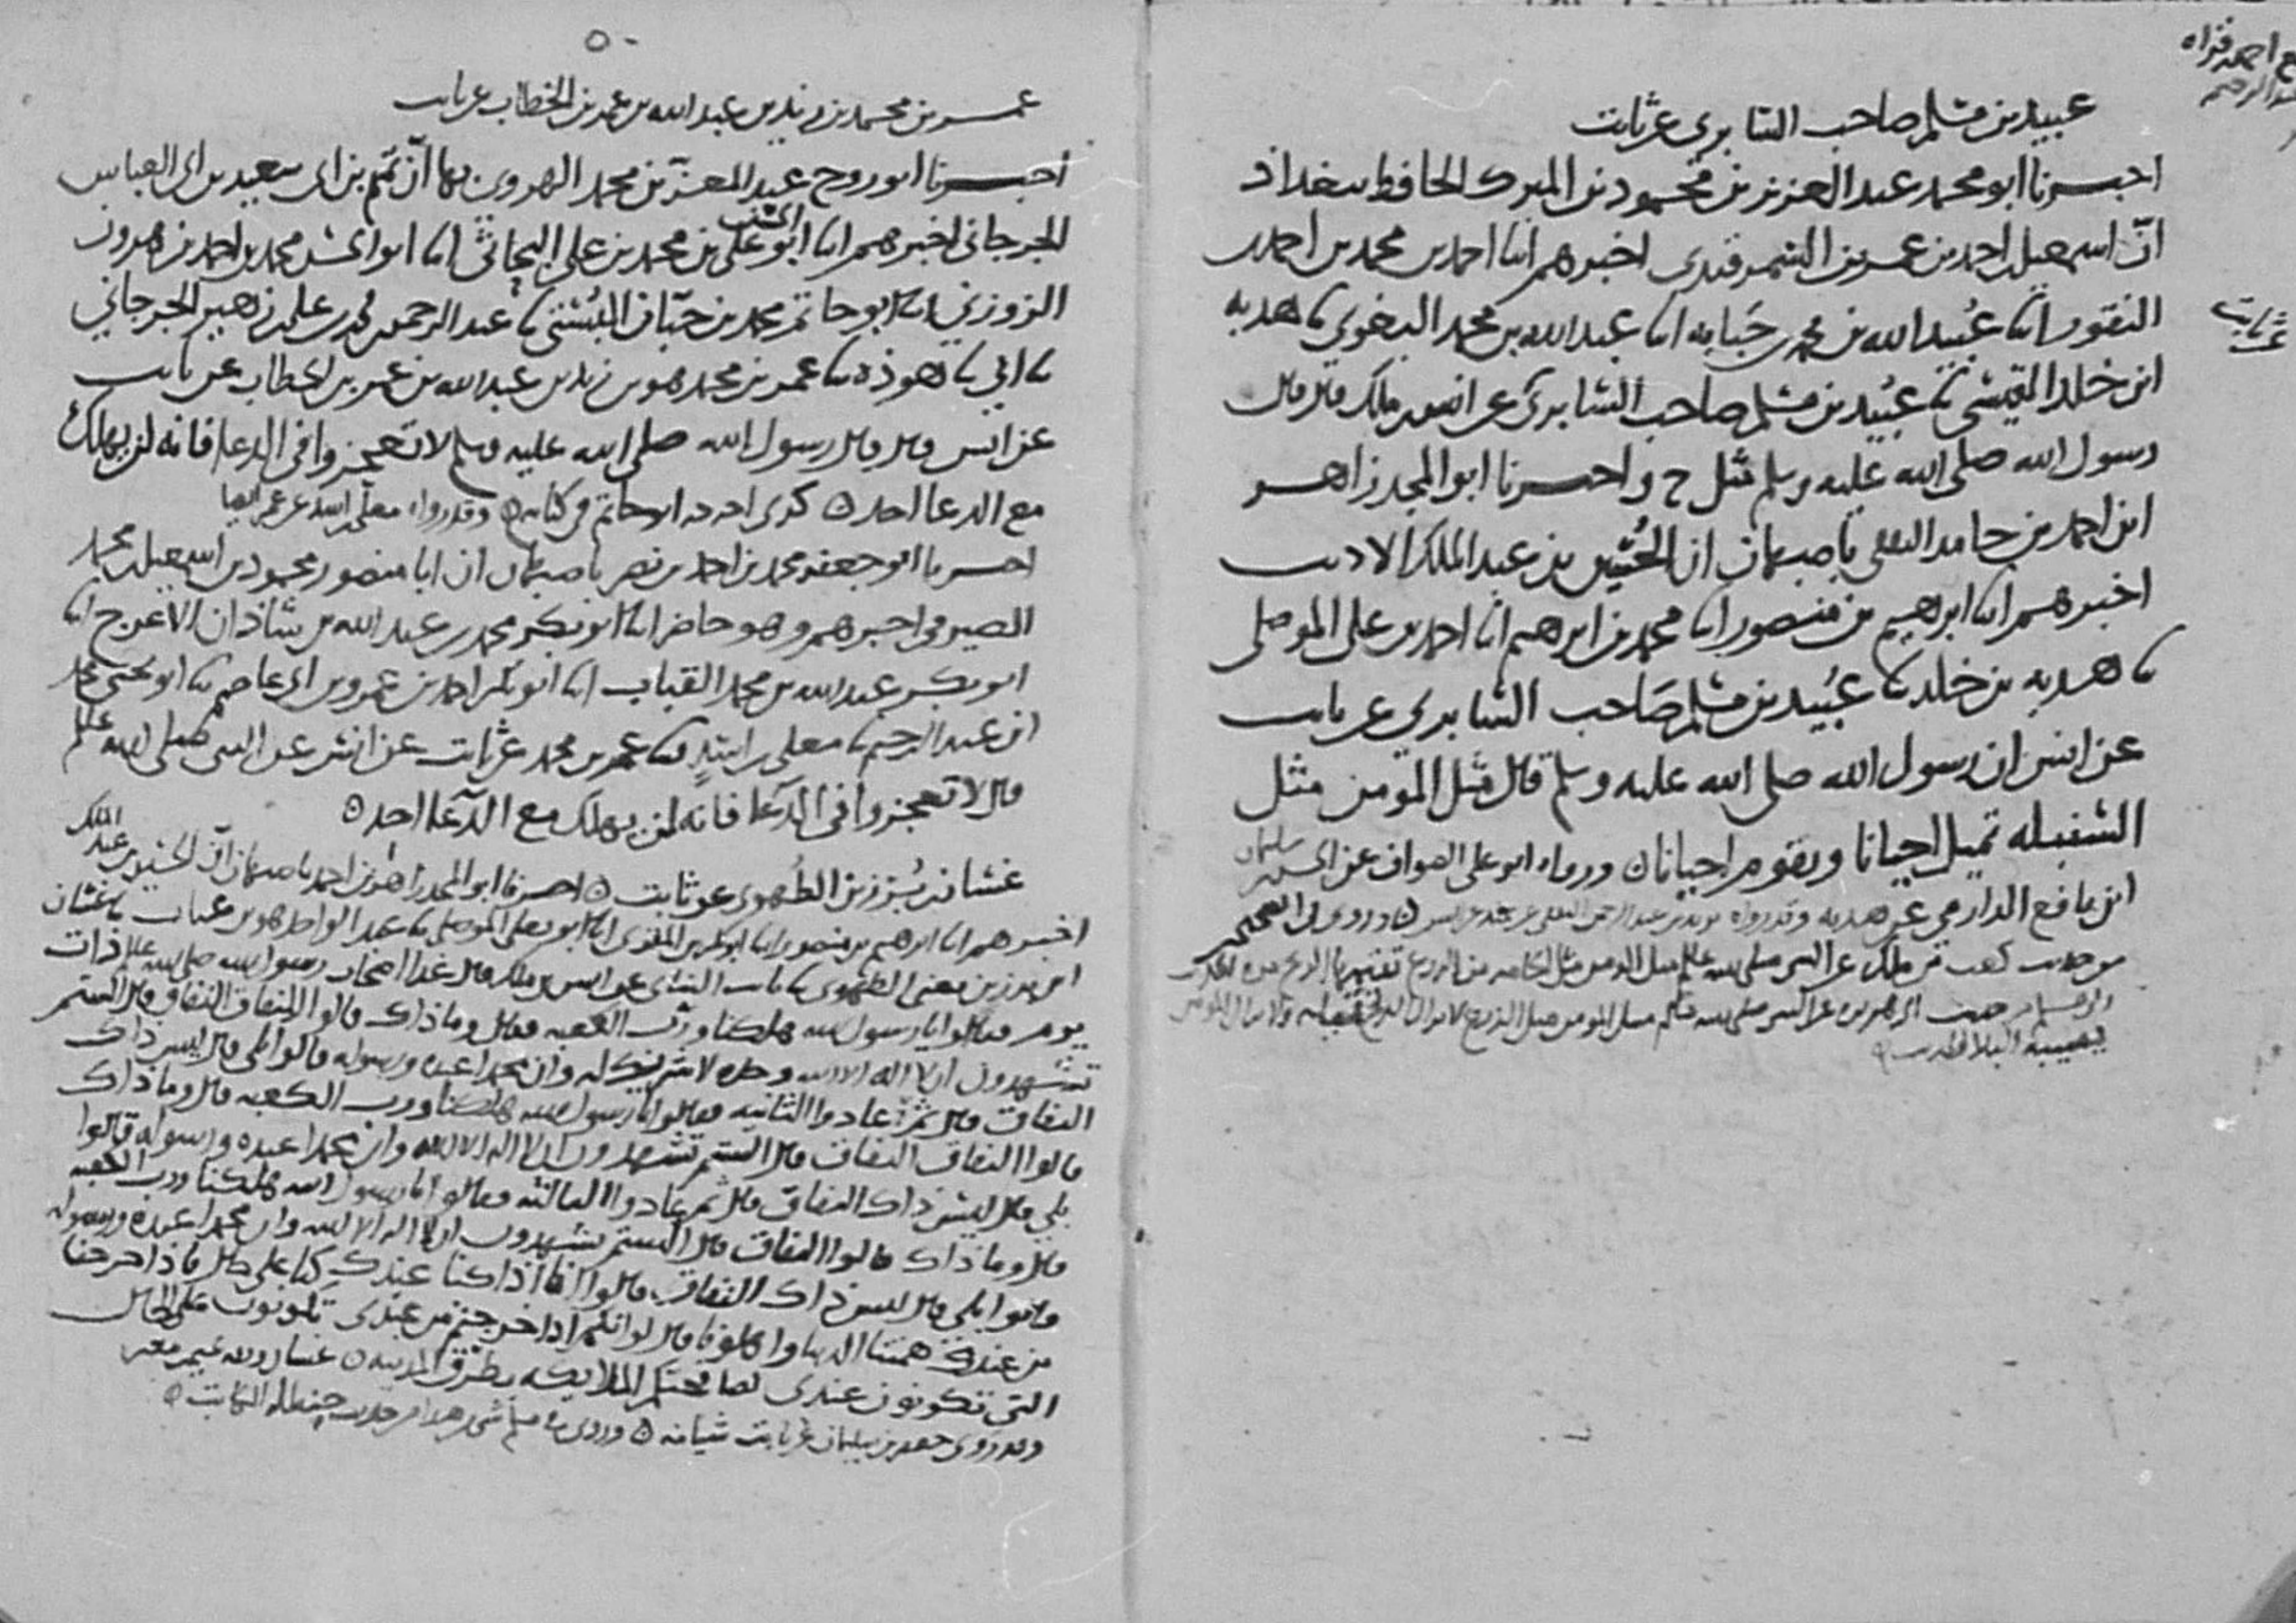 عبيد بن مسلم صاحب السابري عن ثابت
اخبرنا ابو محمد عبد العزيز بن محمود بن المبرك الحافظ ببغداد
انّ اسمعيل بن احمد بن عمر بن السمرقندي اخبرهم انا احمد بن محمد بن احمد بن
النقور انا عبيد الله بن محمد بن حَبَابه انا عبد الله بن محمد البغوي نا هدبه
ابن خلد القيسي نا عُبَيد بن مسلم صاحب السابري عن ثابت عن انس بن ملك قال قال
رسول الله صلى الله عليه وسلم مثل ح واخبرنا ابو المجد زاهر
ابن احمد بن حامد الثقفي باصبهان ان الحُسَين بن عبد الملك الاديب
اخبرهم انا ابرهيم بن منصور انا محمد بن ابرهيم انا احمد بن علي الموصلي
نا هدبه بن خلد نا عبُيد بن مسلم صَاحب السابري عن ثابت
عن انس ان رسول الله صلى الله عليه وسلم قال مثل المؤمن مثل
السنبله تميل احيانا وتقوم احيانا ٥ ورواه ابو علي الصواف عن الحسين سليمان
ابن نافع الدارمي عن هدبه وقد رواه يزيد بن عبد الرحمن ٥ وروي في الصحيحين
من حديث كعب بن ملك عن النبي صلى الله عليه وسلم مثل المومن مثل الخامه من الزرع تفيئها الريح
حديث ابي هريره عن النبي صلى الله عليه وسلم مثل المومن مثل الزرع لا تزال الريح تميله ولا يزال المؤمن
يصيبه البلا الحديث ٥
عن ثابت
٥٠
عمر بن محمد بن زيد بن عبد الله بن عمر بن الخطاب عن ثابت
اخبرنا ابو روح عبد المعزّ بن محمد الهروي بها انّ تميم بن ابي سعيد بن ابي العباس
الجرجاني اخبرهم انا ابو الحسن علي بن محمد بن علي البحاثي انا ابو الحسن محمد بن احمد بن هرون
الزوزني انا ابو حاتم محمد بن حبّان البُستي نا عبد الرحمن بن محمد بن علي بن زهير الجرجاني
نا ابي نا هوذه نا عمر بن محمد هو بن زيد بن عبد الله بن عمر بن الخطاب عن ثابت
عن انس قال قال رسول الله صلى الله عليه وسلم لا تعجزوا في الدعا فانه لن يهلك
مع الدعا احد ٥ كذى اخرجه ابو حاتم في كتابه ٥ وقد رواه معلى بن اسد عن عمر ايضا
اخبرنا ابو جعفر محمد بن احمد بن نصر باصبهان ان ابا منصور محمود بن اسمعيل بن محمد
الصيرفي اخبرهم وهو حاضر انا ابو بكر محمد بن عبد الله بن شاذان الاعرج انا
ابو بكر عبد الله بن محمد القباب انا ابو بكر احمد بن عمرو بن ابي عاصم نا ابو يحيى محمد
ابن عبد الرحيم نا معلى بن اسدٍ نا عمر بن محمد عن ثابت عن انس عن النبي صلى الله عليه وسلم
قال لا تعجزوا في الدّعا فانه لن يهلك مع الدّعا احد ٥
غسّان بن بُرزين الطُهوي عن ثابت ٥ اخبرنا ابو المجد زاهر بن احمد باصبهان انّ الحسين بن عبد الملك
اخبرهم انا ابرهيم بن منصور انا ابو بكر بن المقرئ انا ابو يعلى الموصلي نا عبد الواحد هو بن غياث نا غسان
ابن برزين يعني الطهوي نا ثابت البناني عن انس بن ملك قال غدا اصحاب رسول الله صلى الله عليه ذات
يوم فقالوا يا رسول الله هلكنا وربّ الكعبه فقال وما ذاك قالوا النفاق النفاق قال الستم
تشهدون ان لا اله الا الله وحده لا شريك له وان محمدا عبده ورسوله قالوا بلى قال ليس ذاك
النفاق قال ثم عادوا الثانيه فقالوا يا رسول الله هلكنا ورب الكعبه قال وما ذاك
قالوا النفاق النفاق قال الستم تشهدون ان لا اله الا الله وان محمدا عبده ورسوله قالوا
بلى قال ليس ذاك النفاق قال ثم عادوا الثالثه فقالوا يا رسول الله هلكنا ورب الكعبه
قال وما ذاك قالوا النفاق قال الستم تشهدون ان لا اله الا الله وان محمدا عبده ورسوله
قالوا بلى قال ليس ذاك النفاق قالوا انا اذا كنا عندك كنا على حال فاذا خرجنا
من عندك همتنا الدنيا واهلونا قال لو انكم اذا خرجتم من عندي تكونون على الحال
التي تكونون عندي لصافحتكم الملايكه بطرق المدينه ٥ غسان وثقه يحيى بن معين
وقد روى جعفر بن سليمان عن ثابت شيا منه ٥ وروى م شي من هذا من حديث حنظله الكاتب ٥